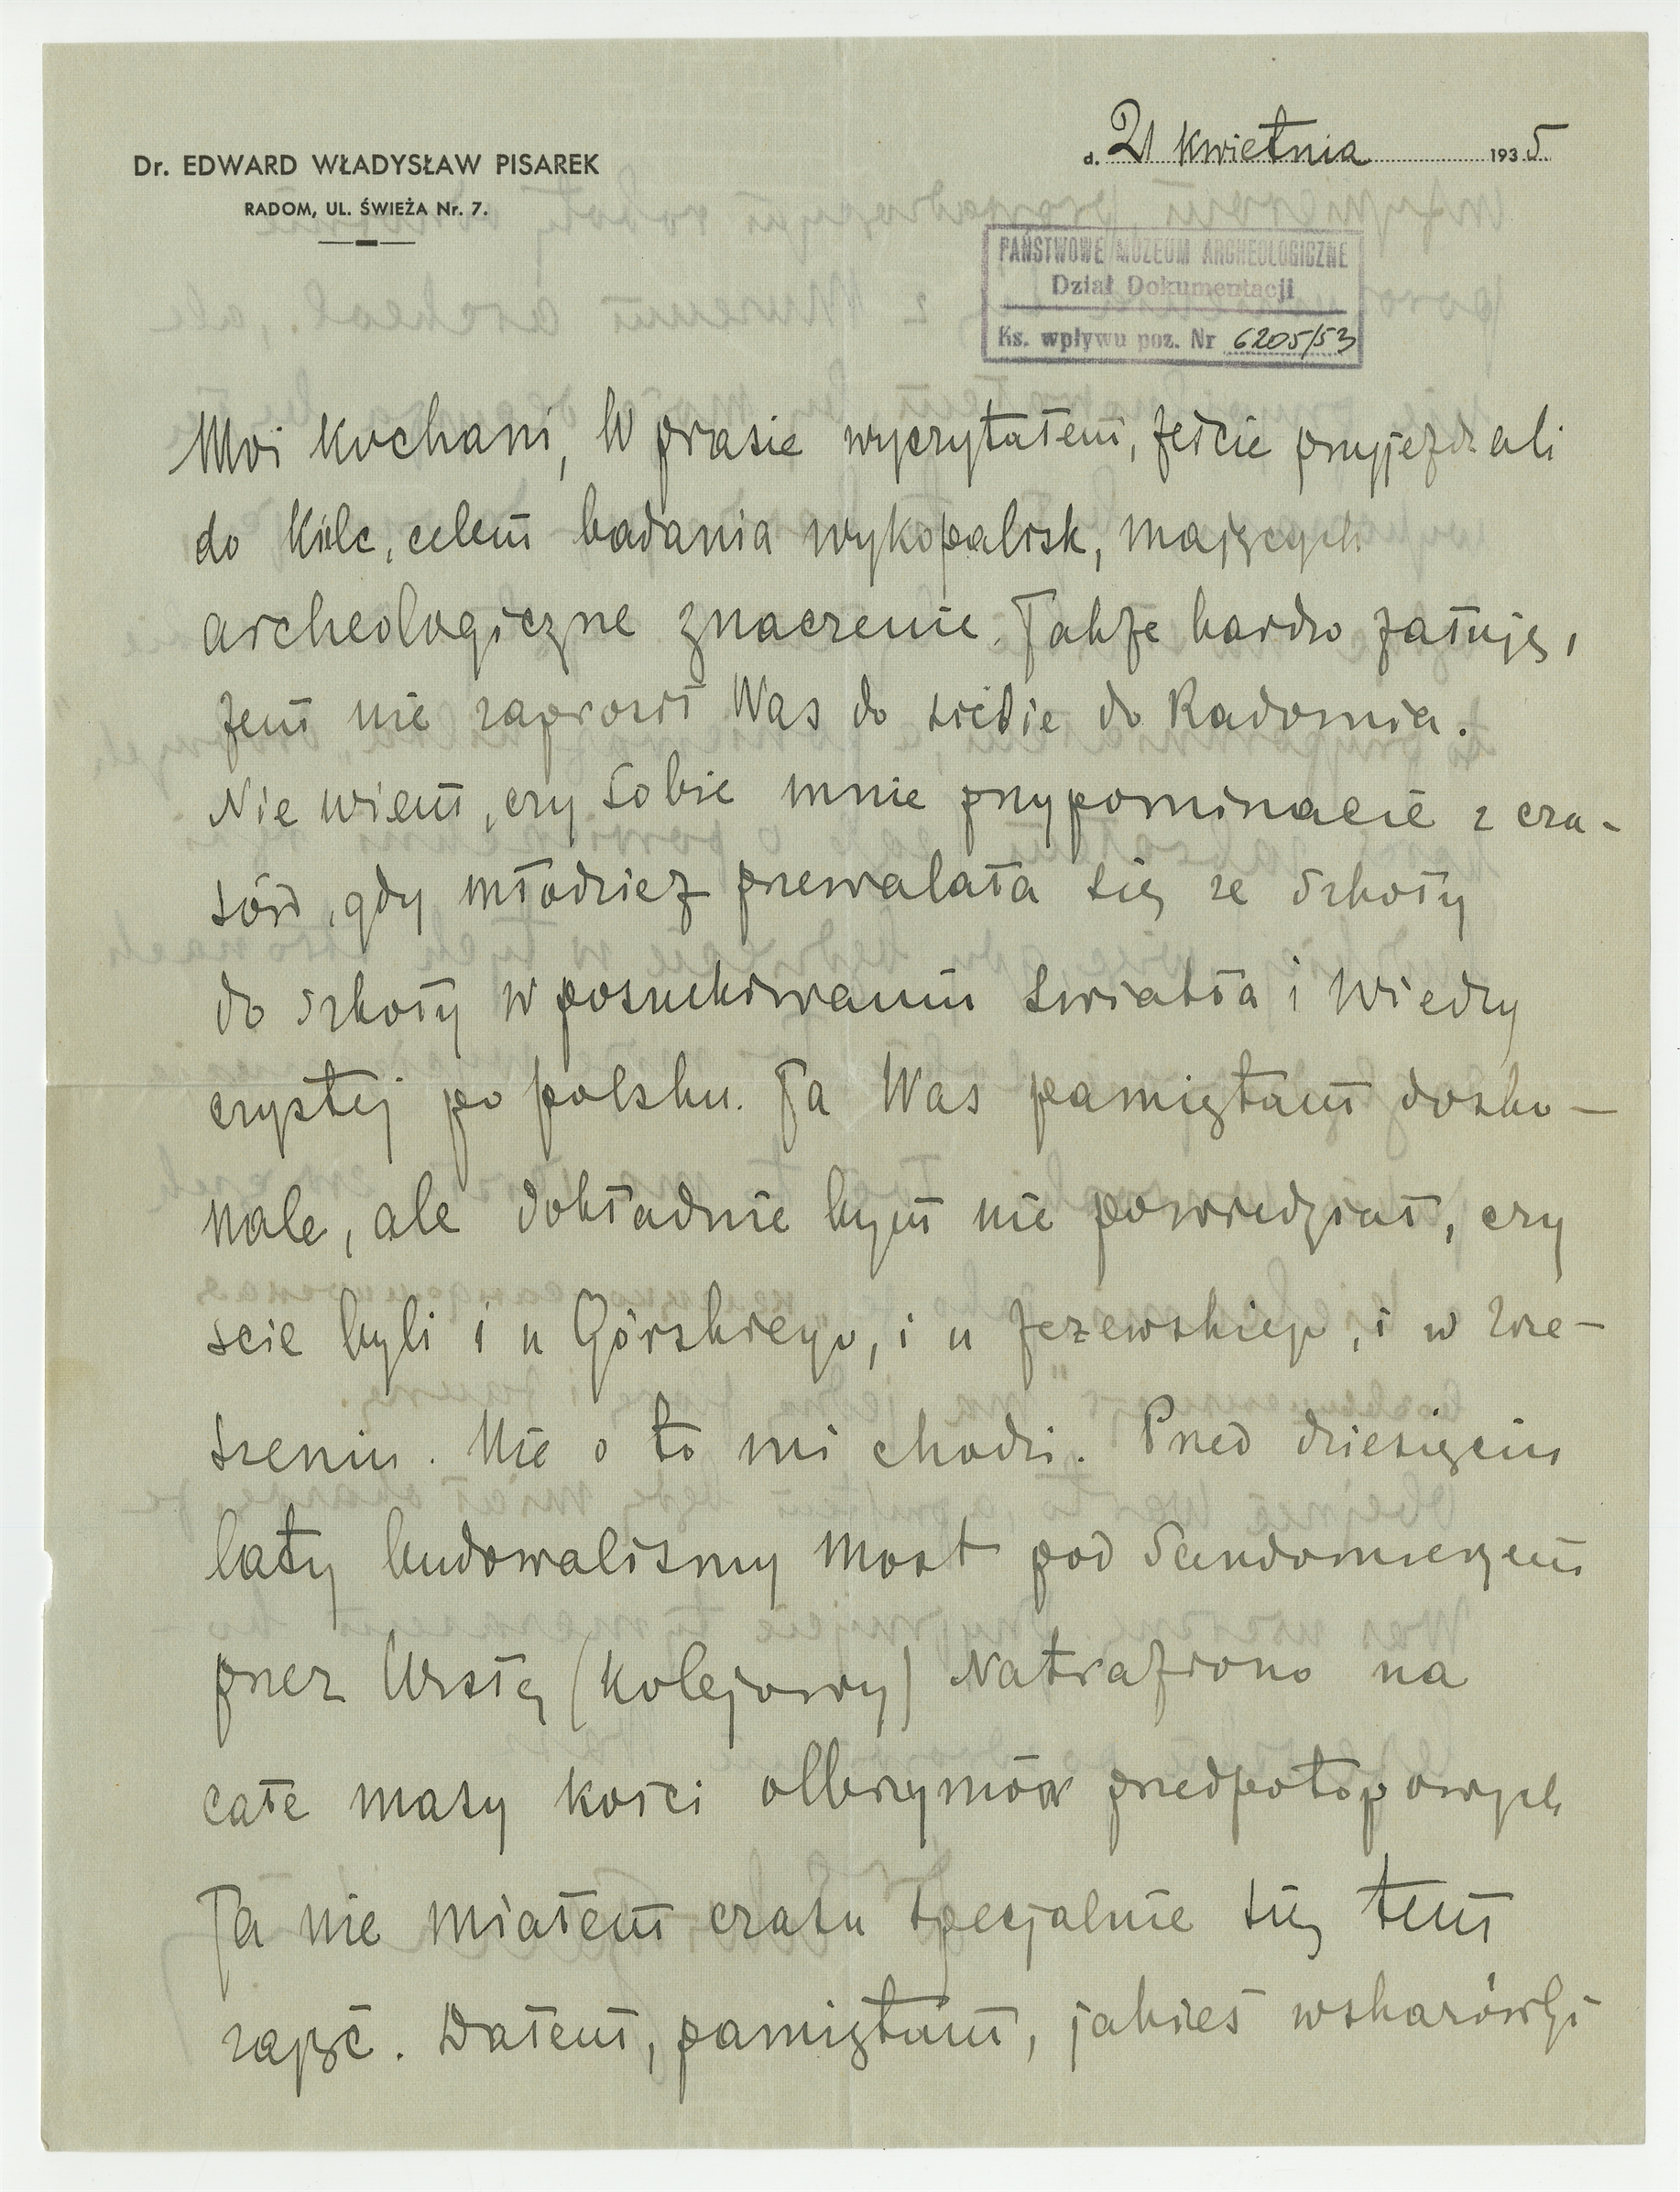 Dr. EDWARD WŁADYSŁAW PISAREK
RADOM, UL. ŚWIEŻA Nr. 7.
d. 21 Kwietnia 1935
PAŃSTWOWE MUZEUM ARCHEOLOGICZNE
Dział Dokumentacji
Ks. wpływu poz. Nr 6205/53
Moi Kochani, W prasie wyczytałem, żeście przyjeżdżali
do Kielc, celem badania wykopalisk, mających
archeologiczne znaczenie. Jakże bardzo żałuję,
żem nie zaprosił Was do siebie do Radomia.
Nie wiem, czy sobie mnie przypominacie z cza-
sów, gdy młodzież przewalała się ze szkoły
do szkoły w poszukiwaniu światła i wiedzy
czystej po polsku. Ja Was pamiętam dosko-
nale, ale dokładnie bym nie powiedział, czy
ście byli i u Górskiego, i u Jeżewskiego, i w Zrze-
szeniu. Nie o to mi chodzi. Przed dziesięciu
laty budowaliśmy most pod Sandomierzem
przez Wisłę (Kolejowy) Natrafiono na
całe masy kości olbrzymów przedpotopowych
Ja nie miałem czasu specjalnie się tem
zająć. Dałem, pamiętam, jakieś wskazówki